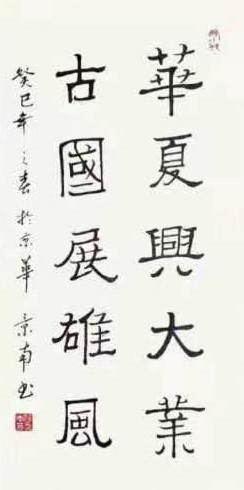 華夏興大業
古國展雄風
癸巳年之春於京華 景南书